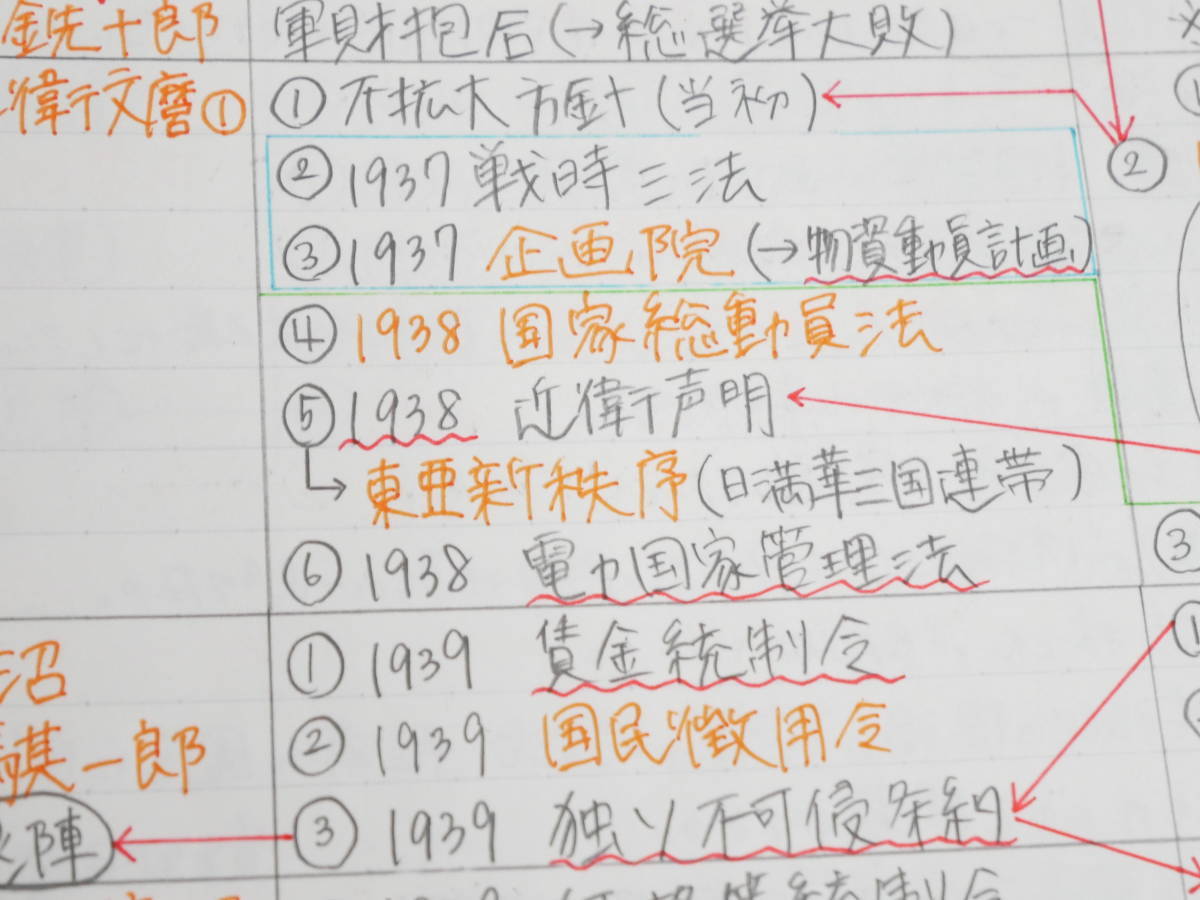 銑十郎 軍財抱合(→総選挙大敗)
衛文麿① ①不拡大方針(当初)
②1937 戦時三法 ②
③1937 企画院(→物資動員計画)
④1938 国家総動員法
⑤1938 近衛声明
→東亜新秩序(日満華三国連帯)
⑥1938 電力国家管理法 ③
沼 ①1939 賃金統制令 ①
②1939 国民徴用令
騏一郎
陣 ③1939 独ソ不可侵条約
統制令